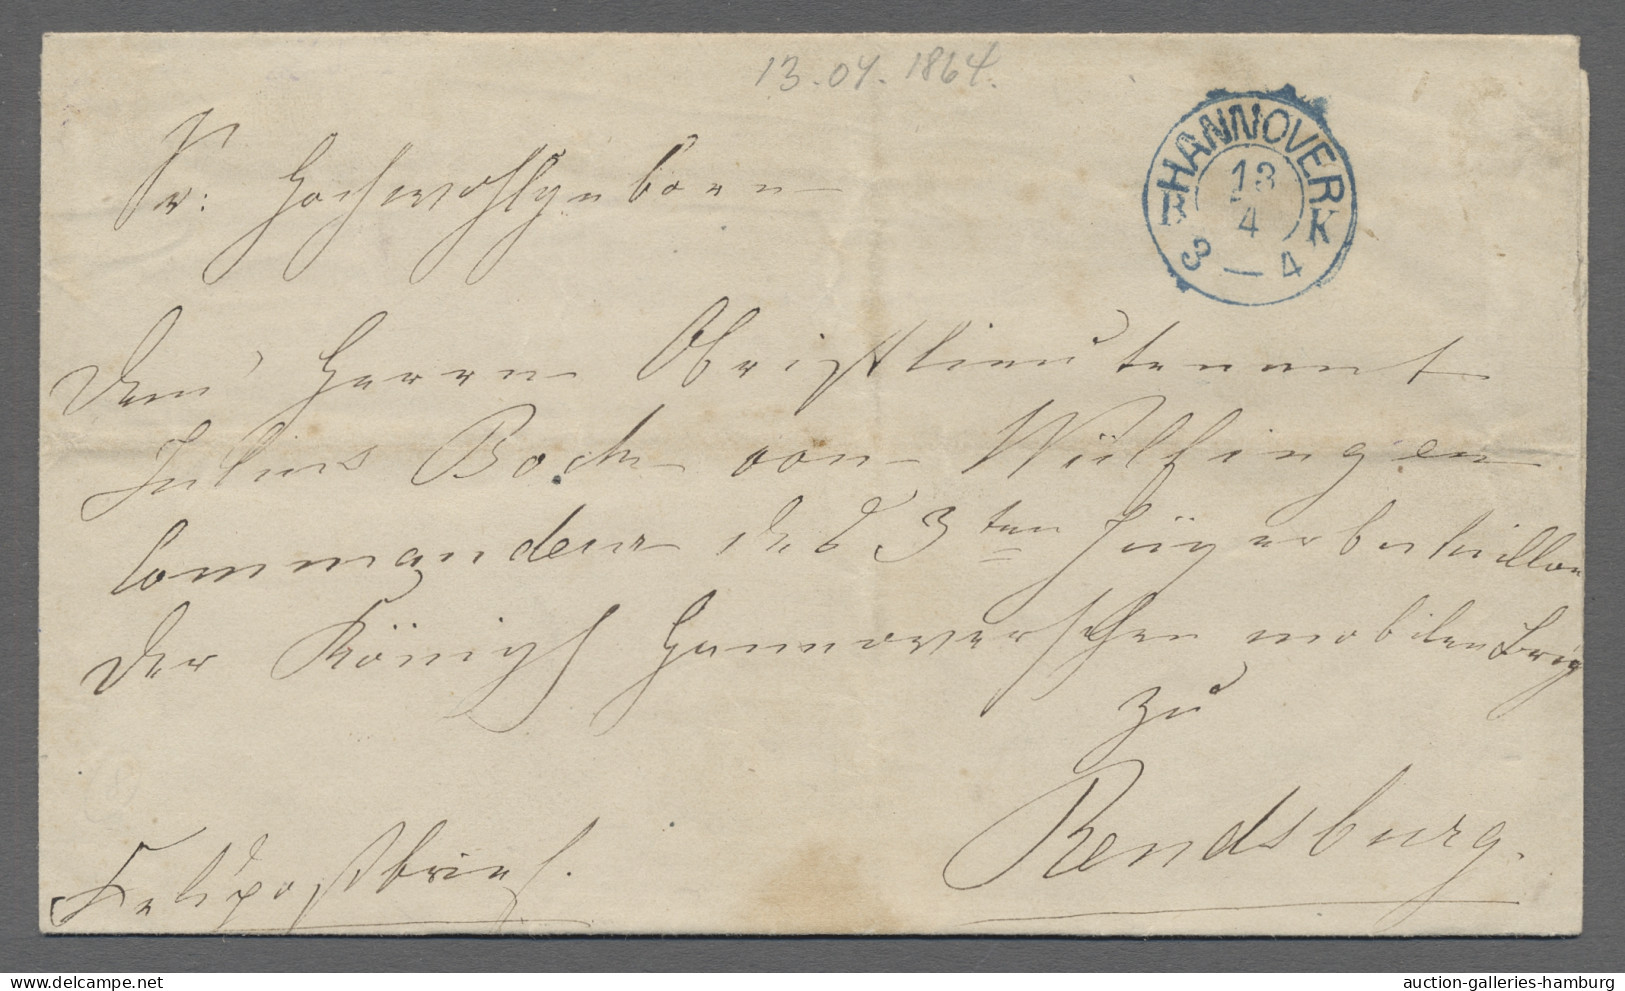 13.04.1864.
HANNOVER
13
4
B K
3 — 4
Sr: Hochwohlgeboren
dem Herrn Obristlieutenant
Julius Bock von Wülfingen
Commandeur des 3ten Jägerbataillon
der Königl Hannoverschen mobilen Brig
zu
Rendsburg.
Feldpostbrief.
auction-galleries-hamburg